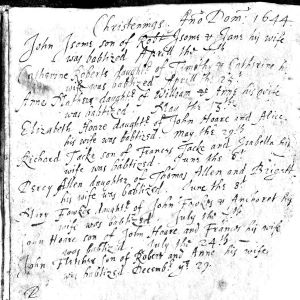 Christenings. Ano Dom: 1644
John Isome son of Isome & Jane his wife
was baptized Aprill the
Catharine Roberts daughter of Timothy & Catherine his
wife was baptized Aprill the 23th
Anne daughter of William & Anne his wife
was baptized May the 13th
Elizabeth Hoare daughter of John Hoare and Alice
his wife was baptized May the 29th
Richard Tacke son of Francis Tacke and Isabella his
wife was baptized June the 6th
Percy Allen daughter of Thomas Allen and Brigett
his wife was baptized June the 8th
Mary Fowkes daughter of John Fowkes & his
wife was baptized July the
John Hoare son of John Hoare and Frances his
wife was baptized July the 24th
John Fletcher son of Robert and Anne his wife
was baptized Decembr ye 29.